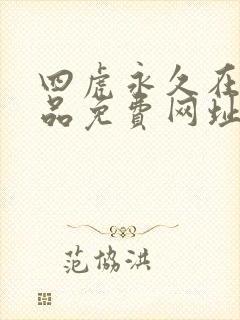 四虎永久在
品免費网址
范協洪